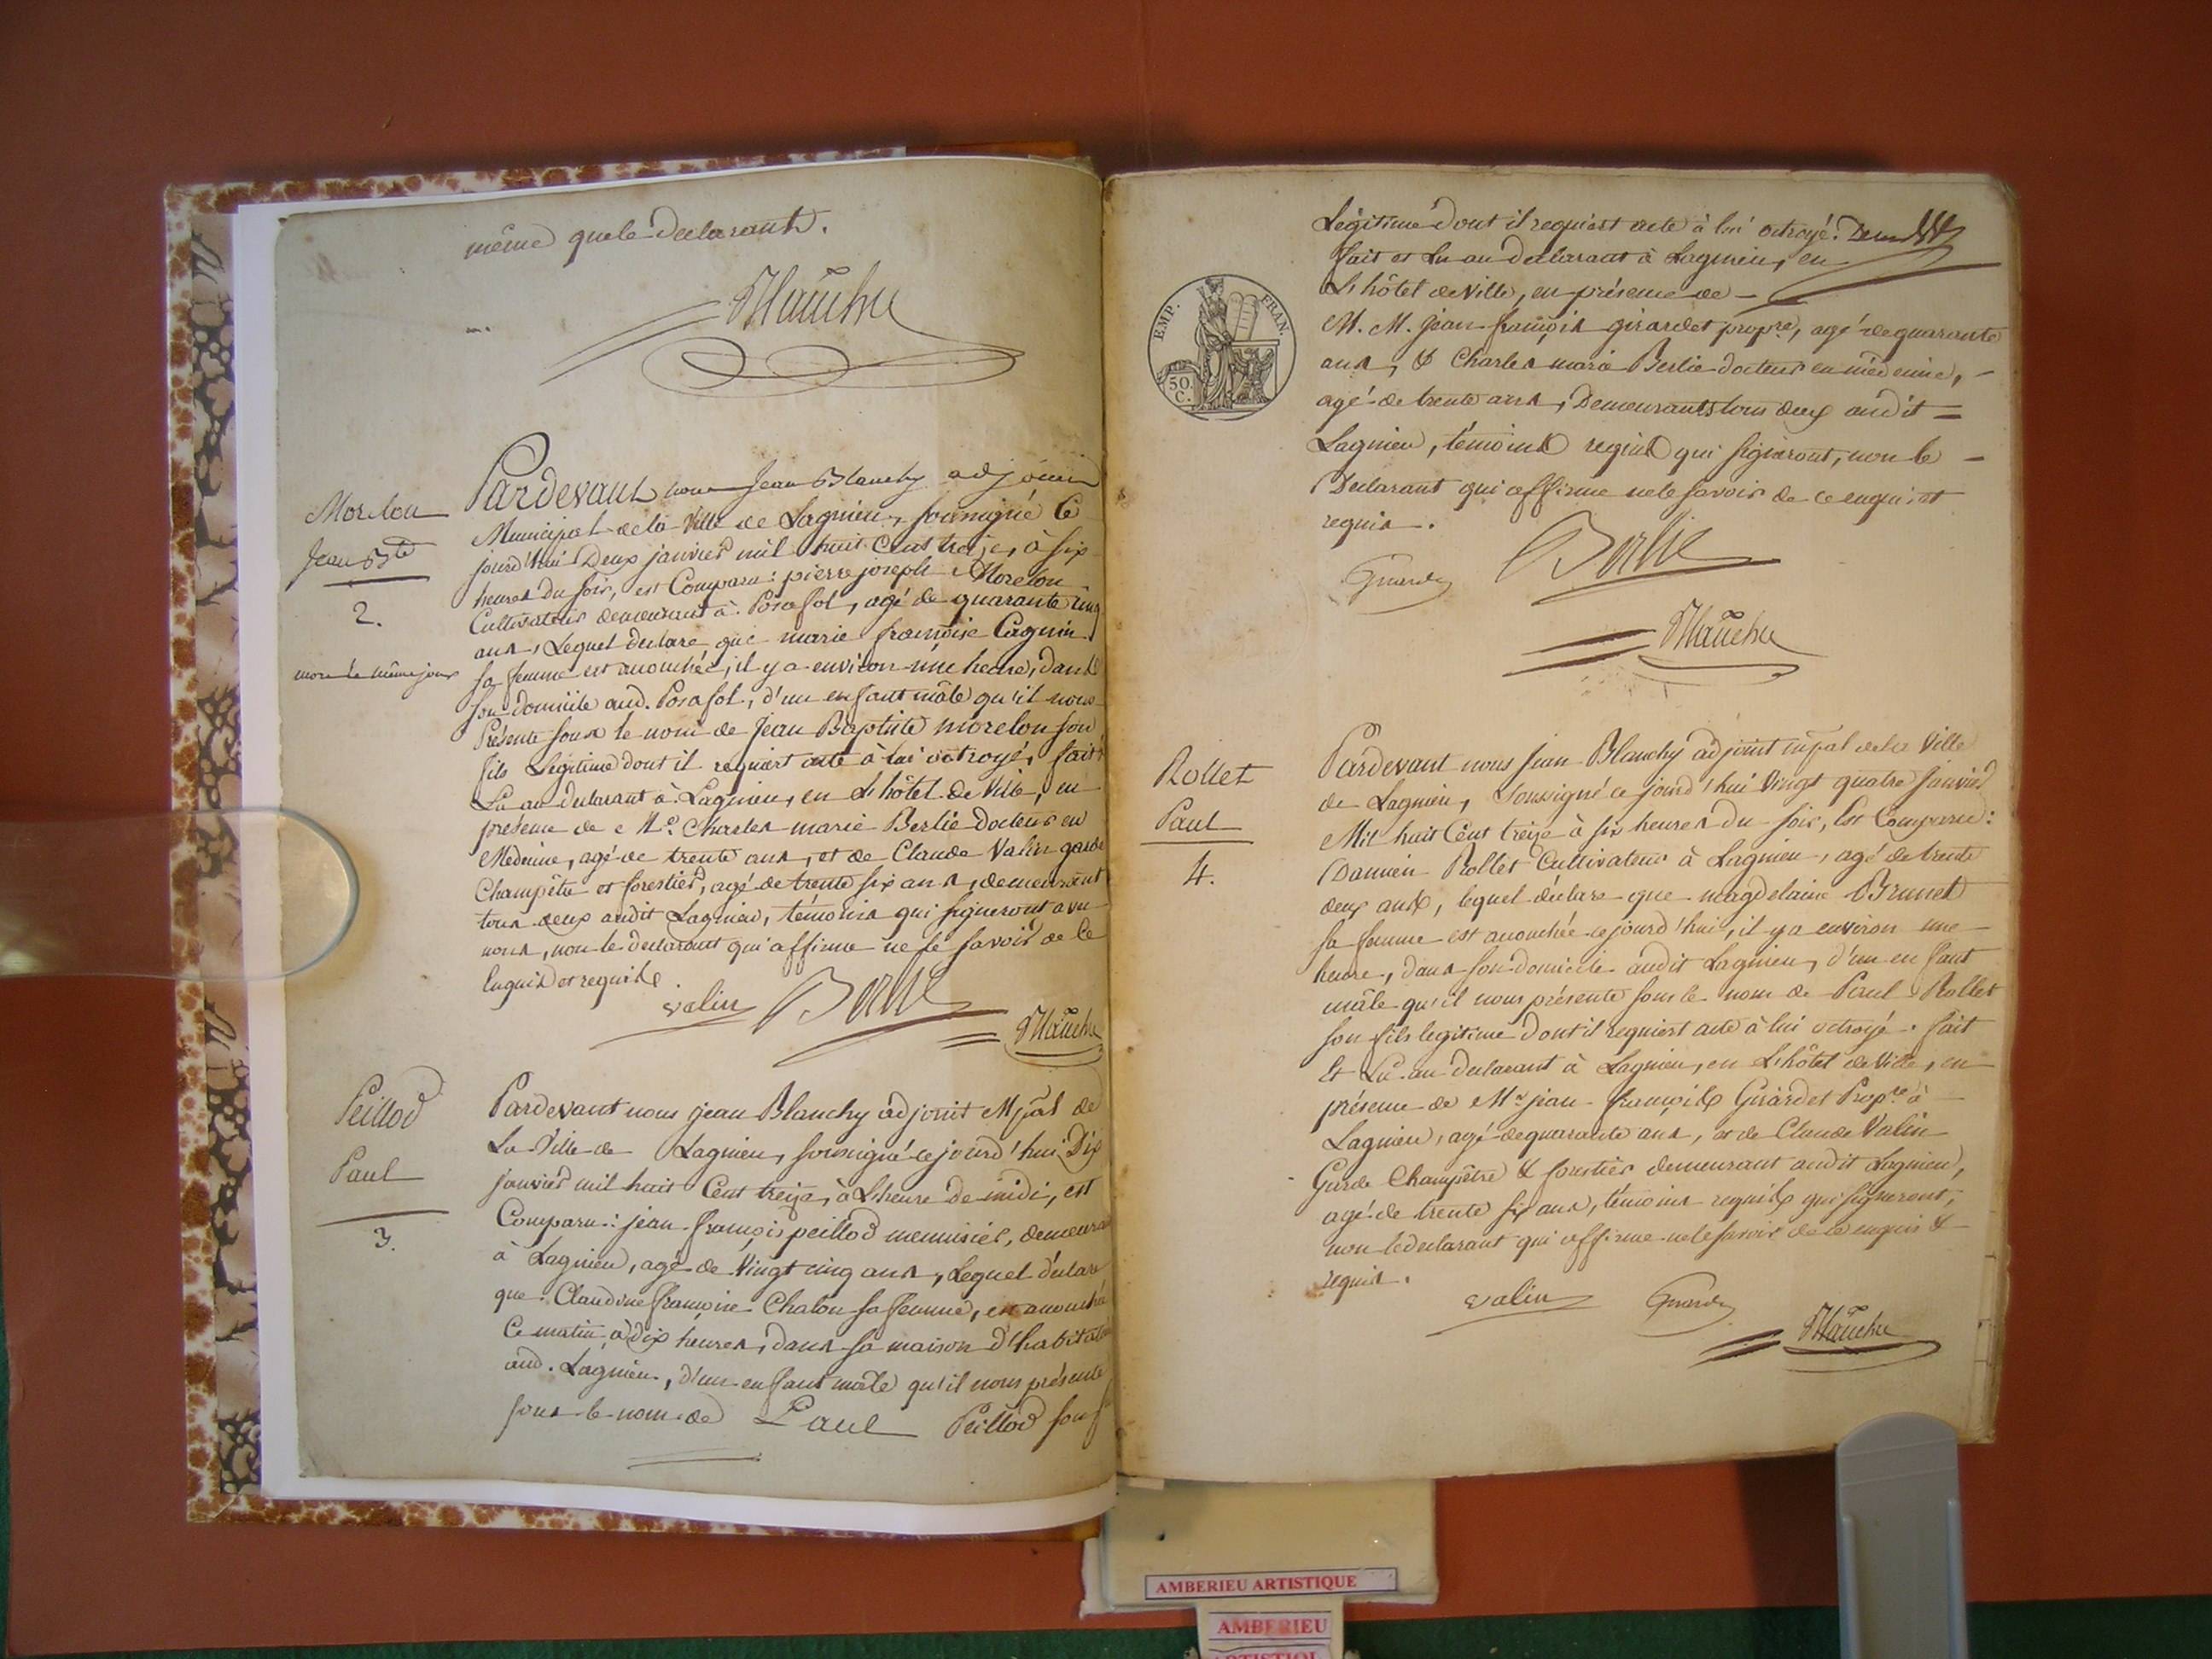 même que le déclarant.
Blanchy
Morelon
Jean Bte
2.
mort le même jour
Pardevant nous Jean Blanchy adjoint
Municipal de la Ville de Lagnieu, soussigné Ce
jourd'hui Deux janvier mil huit Cent treize, à six
heures du soir, est Comparu : pierre joseph Morelon
Cultivateur demeurant à Posafol, agé de quarante cinq
ans, Lequel declare que marie françoise Cagnin
sa femme est accouchée, il y a environ une heure, dans
son domicile aud. Posafol, d'un enfant mâle qu'il nous
Présente sous le nom de Jean Baptiste morelon son
fils Légitime dont il requiert acte à lui octroyé, fait &
Lu au declarant à Lagnieu, en L'hôtel de Ville, en
présence de Mr. Charles marie Berlie Docteur en
Medecine, agé de trente ans, et de Claude Valin garde
Champêtre et forestier, agé de trente six ans, demeurant
tous deux audit Lagnieu, témoins qui signeront avec
nous, non le declarant qui affirme ne le savoir de ce
Enquis et requis.
valin Berlie
Blanchy
Peillod
Paul
3.
Pardevant nous jean Blanchy adjoint Mpal de
La Ville de Lagnieu, soussigné cejourd'hui Dix
janvier mil huit Cent treize, à L'heure de midi, est
Comparu : jean françois peillod menuisier, demeura
à Lagnieu, agé de Vingt cinq ans, Lequel déclare
que Claudine françoise Chalon sa femme, est accouchée
Ce matin à dix heures, dans sa maison d'habitation
aud. Lagnieu, d'un enfant mâle qu'il nous présente
sous le nom de Paul Peillod son f
EMP. FRAN.
50.
C.
Légitime dont il requiert acte à lui octroyé.
fait et Lu au declarant à Lagnieu, en
L'hôtel de Ville, en présence de
M. M. Jean françois girardet propre, agé de quarante
ans, & Charles marie Berlie docteur en médecine,
agé de trente ans, Demeurants tous deux audit
Lagnieu, témoins requis qui signeront, non le
Déclarant qui affirme ne le savoir de ce enquis et
requis.
Girardet Berlie
Blanchy
Rollet
Paul
4.
Pardevant nous jean Blanchy adjoint mpal de la Ville
de Lagnieu, Soussigné ce jourd'hui Vingt quatre Janvier
Mil huit Cent treize à six heures du soir, Est Comparu :
Damien Rollet Cultivateur à Lagnieu, agé de trente
deux ans, lequel déclare que magdelaine Brunet
sa femme est accouchée cejourd'hui, il y a environ une
heure, dans son domicile audit Lagnieu, d'un enfant
mâle qu'il nous présente sous le nom de Paul Rollet
son fils legitime dont il requiert acte à lui octroyé. fait
Et Lu au declarant à Lagnieu, en L'hôtel de Ville, en
présence de Mr jean françois Girardet Propre à
Lagnieu, agé de quarante ans, et de Claude Valin
Garde Champêtre & forestier demeurant audit Lagnieu,
agé de trente six ans, témoins requis qui signeront,
non le declarant qui affirme ne le savoir de ce enquis &
requis.
valin Girardet
Blanchy
AMBERIEU ARTISTIQUE
AMBERIEU
ARTISTIQUE